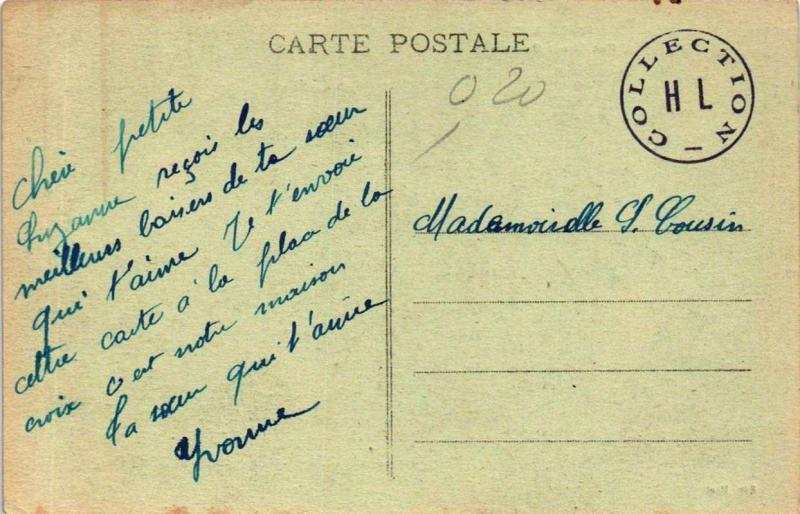 CARTE POSTALE
COLLECTION
HL
0 20
Chère petite
Suzanne reçois les
meilleurs baisers de ta sœur
qui t'aime Je t'envoie
cette carte à la place de la
croix c'est notre maison
Ta sœur qui t'aime
Yvonne
Mademoiselle S. Cousin